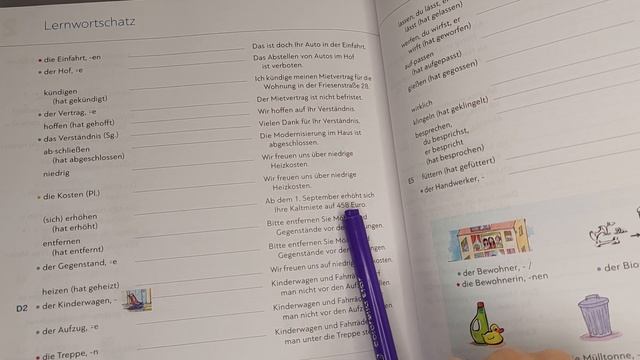 Lernwortschatz
die Einfahrt, -en
Das ist doch Ihr Auto in der Einfahrt.
der Hof, -e
Das Abstellen von Autos im Hof
ist verboten.
kündigen
(hat gekündigt)
Ich kündige meinen Mietvertrag für die
Wohnung in der Friesenstraße 28.
der Vertrag, -e
Der Mietvertrag ist nicht befristet.
hoffen (hat gehofft)
Wir hoffen auf Ihr Verständnis.
das Verständnis (Sg.)
Vielen Dank für Ihr Verständnis.
ab·schließen
(hat abgeschlossen)
Die Modernisierung im Haus ist
abgeschlossen.
niedrig
Wir freuen uns über niedrige
Heizkosten.
die Kosten (Pl.)
Wir freuen uns über niedrige
Heizkosten.
(sich) erhöhen
(hat erhöht)
Ab dem 1. September erhöht sich
Ihre Kaltmiete auf 458 Euro.
entfernen
(hat entfernt)
Bitte entfernen Sie
Gegenstände vor
der Gegenstand, -e
Bitte entfernen Sie
Gegenstände vor
heizen (hat geheizt)
Wir freuen uns auf
D2
der Kinderwagen, -
Kinderwagen und
man nicht vor den
der Aufzug, -e
Kinderwagen und
man nicht vor den
die Treppe, -n
Kinderwagen und
man unter die
lassen, du lässt, er
lässt (hat gelassen)
werfen, du wirfst, er
wirft (hat geworfen)
auf·passen
(hat aufgepasst)
gießen (hat gegossen)
wirklich
klingeln (hat geklingelt)
besprechen,
du besprichst,
er bespricht
(hat besprochen)
E5
füttern (hat gefüttert)
der Handwerker, -
der Bewohner, - /
die Bewohnerin, -nen
der Bio
Mülltonne,